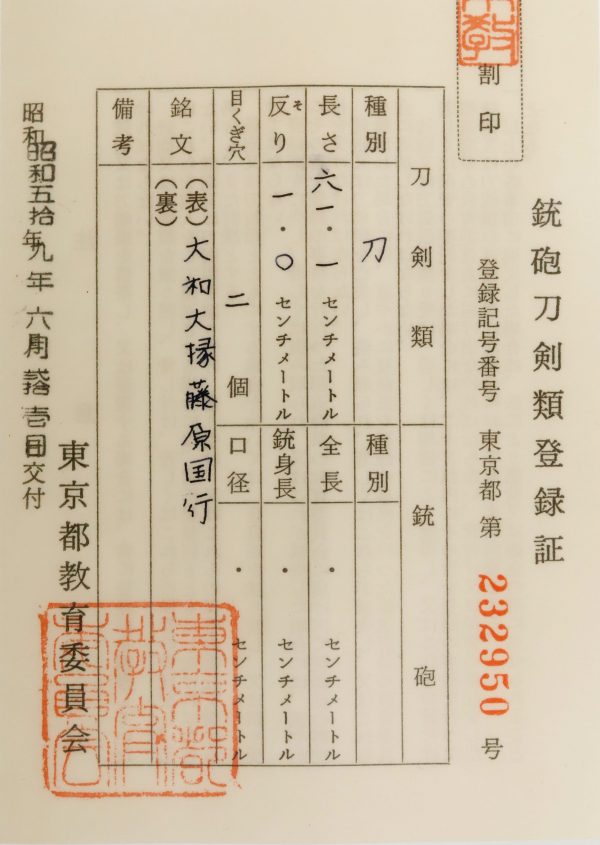 銃砲刀剣類登録証
登録記号番号 東京都 第 232950 号
割印
刀剣類
銃砲
種別 刀
種別
長さ 六一・一 センチメートル
全長 ・ センチメートル
反り そ 一・〇 センチメートル
銃身長 ・ センチメートル
目くぎ穴 二 個
口径 ・ センチメートル
銘文 (表) 大和大掾藤原国行
(裏)
備考
東京都教育委員会
昭和五拾九年六月拾壱日交付
東京都教育委員会